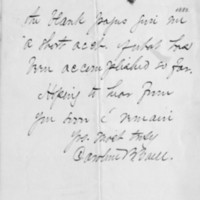 the blank pages give me
a short acct. of what has
been accomplished so far.
Hoping to hear from
you soon I remain
yrs. most truly
Caroline B. Buell.